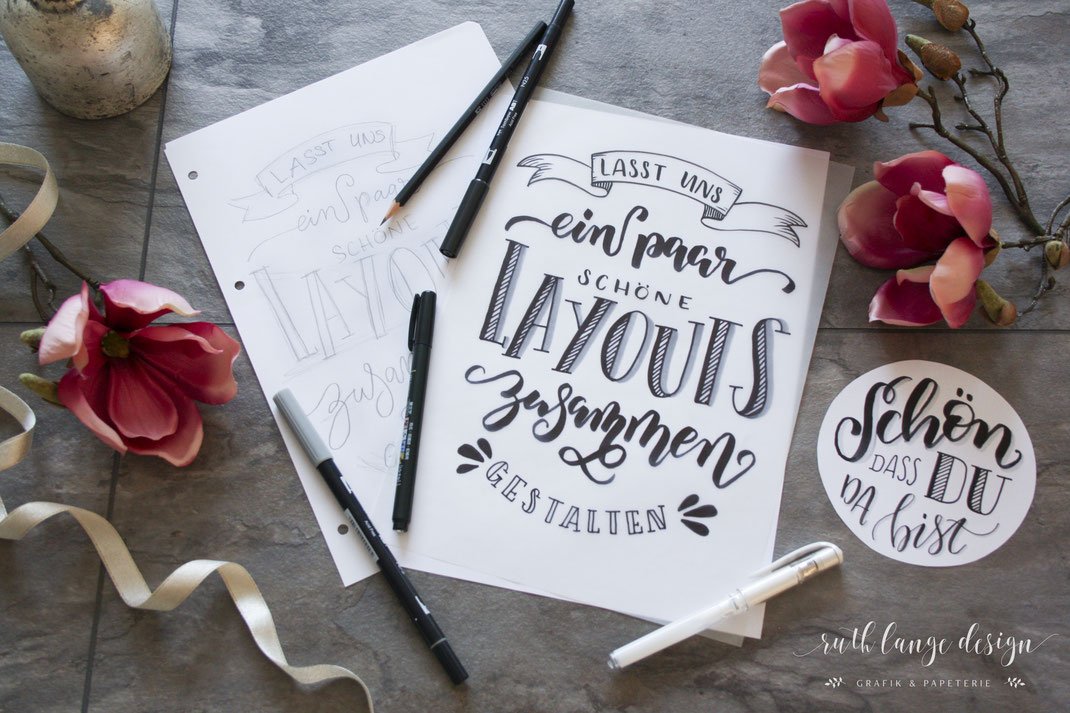 LASST UNS
ein paar
SCHÖNE
LAYOUTS
zusammen
GESTALTEN
LASST UNS
ein paar
SCHÖNE
LAYOU
zusam
Schön
DASS DU
DA bist
ruth lange design
GRAFIK & PAPETERIE